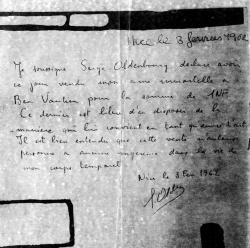 Nice le 3 février 1962
Je soussigné Serge Oldenbourg déclare avoir
ce jour vendu mon âme immortelle à
Ben Vautier pour la somme de 1NF
Ce dernier est libre d'en disposer de la
manière qui lui convient en tant qu'œuvre d'art
Il est bien entendu que cette vente n'autorise
personne à aucune ingérence dans la vie de
mon corps temporel
Nice le 3 Fev 1962